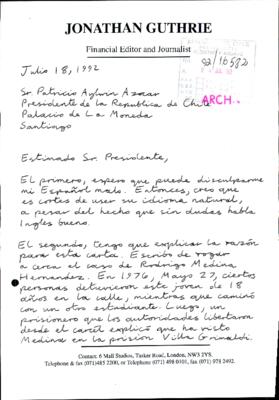 JONATHAN GUTHRIE
Financial Editor and Journalist
Julio 18, 1992
92/16582
ARCH.
Sr Patricio Aylwin Azocar
Presidente de la Republica de Chile
Palacio de La Moneda
Santiago
Estimado Sr. Presidente,
El primero, espero que pueda disculparme
mi Español malo. Entonces, creo que
es cortes de usar su idioma natural,
a pesar del hecho que sin dudas habla
Ingles bueno.
El segundo, tengo que explicar la razón
para esta carta. Escribo de rogar
a cerca el caso de Rodrigo Medina
Hernandez. En 1976, Mayo 27, ciertos
personas detuvieron este joven de 18
años en la calle, mientras que caminó
con un otro estudiante. Luego, un
prisionero que los autoridades libertaron
desde el carcil explicó que ha visto
Medina en la prision Villa Grimaldi.
Contact: 6 Mall Studios, Tasker Road, London, NW3 2YS.
Telephone & fax (071)485 2200, or Telephone (071) 498 0101, fax (071) 978 2492.